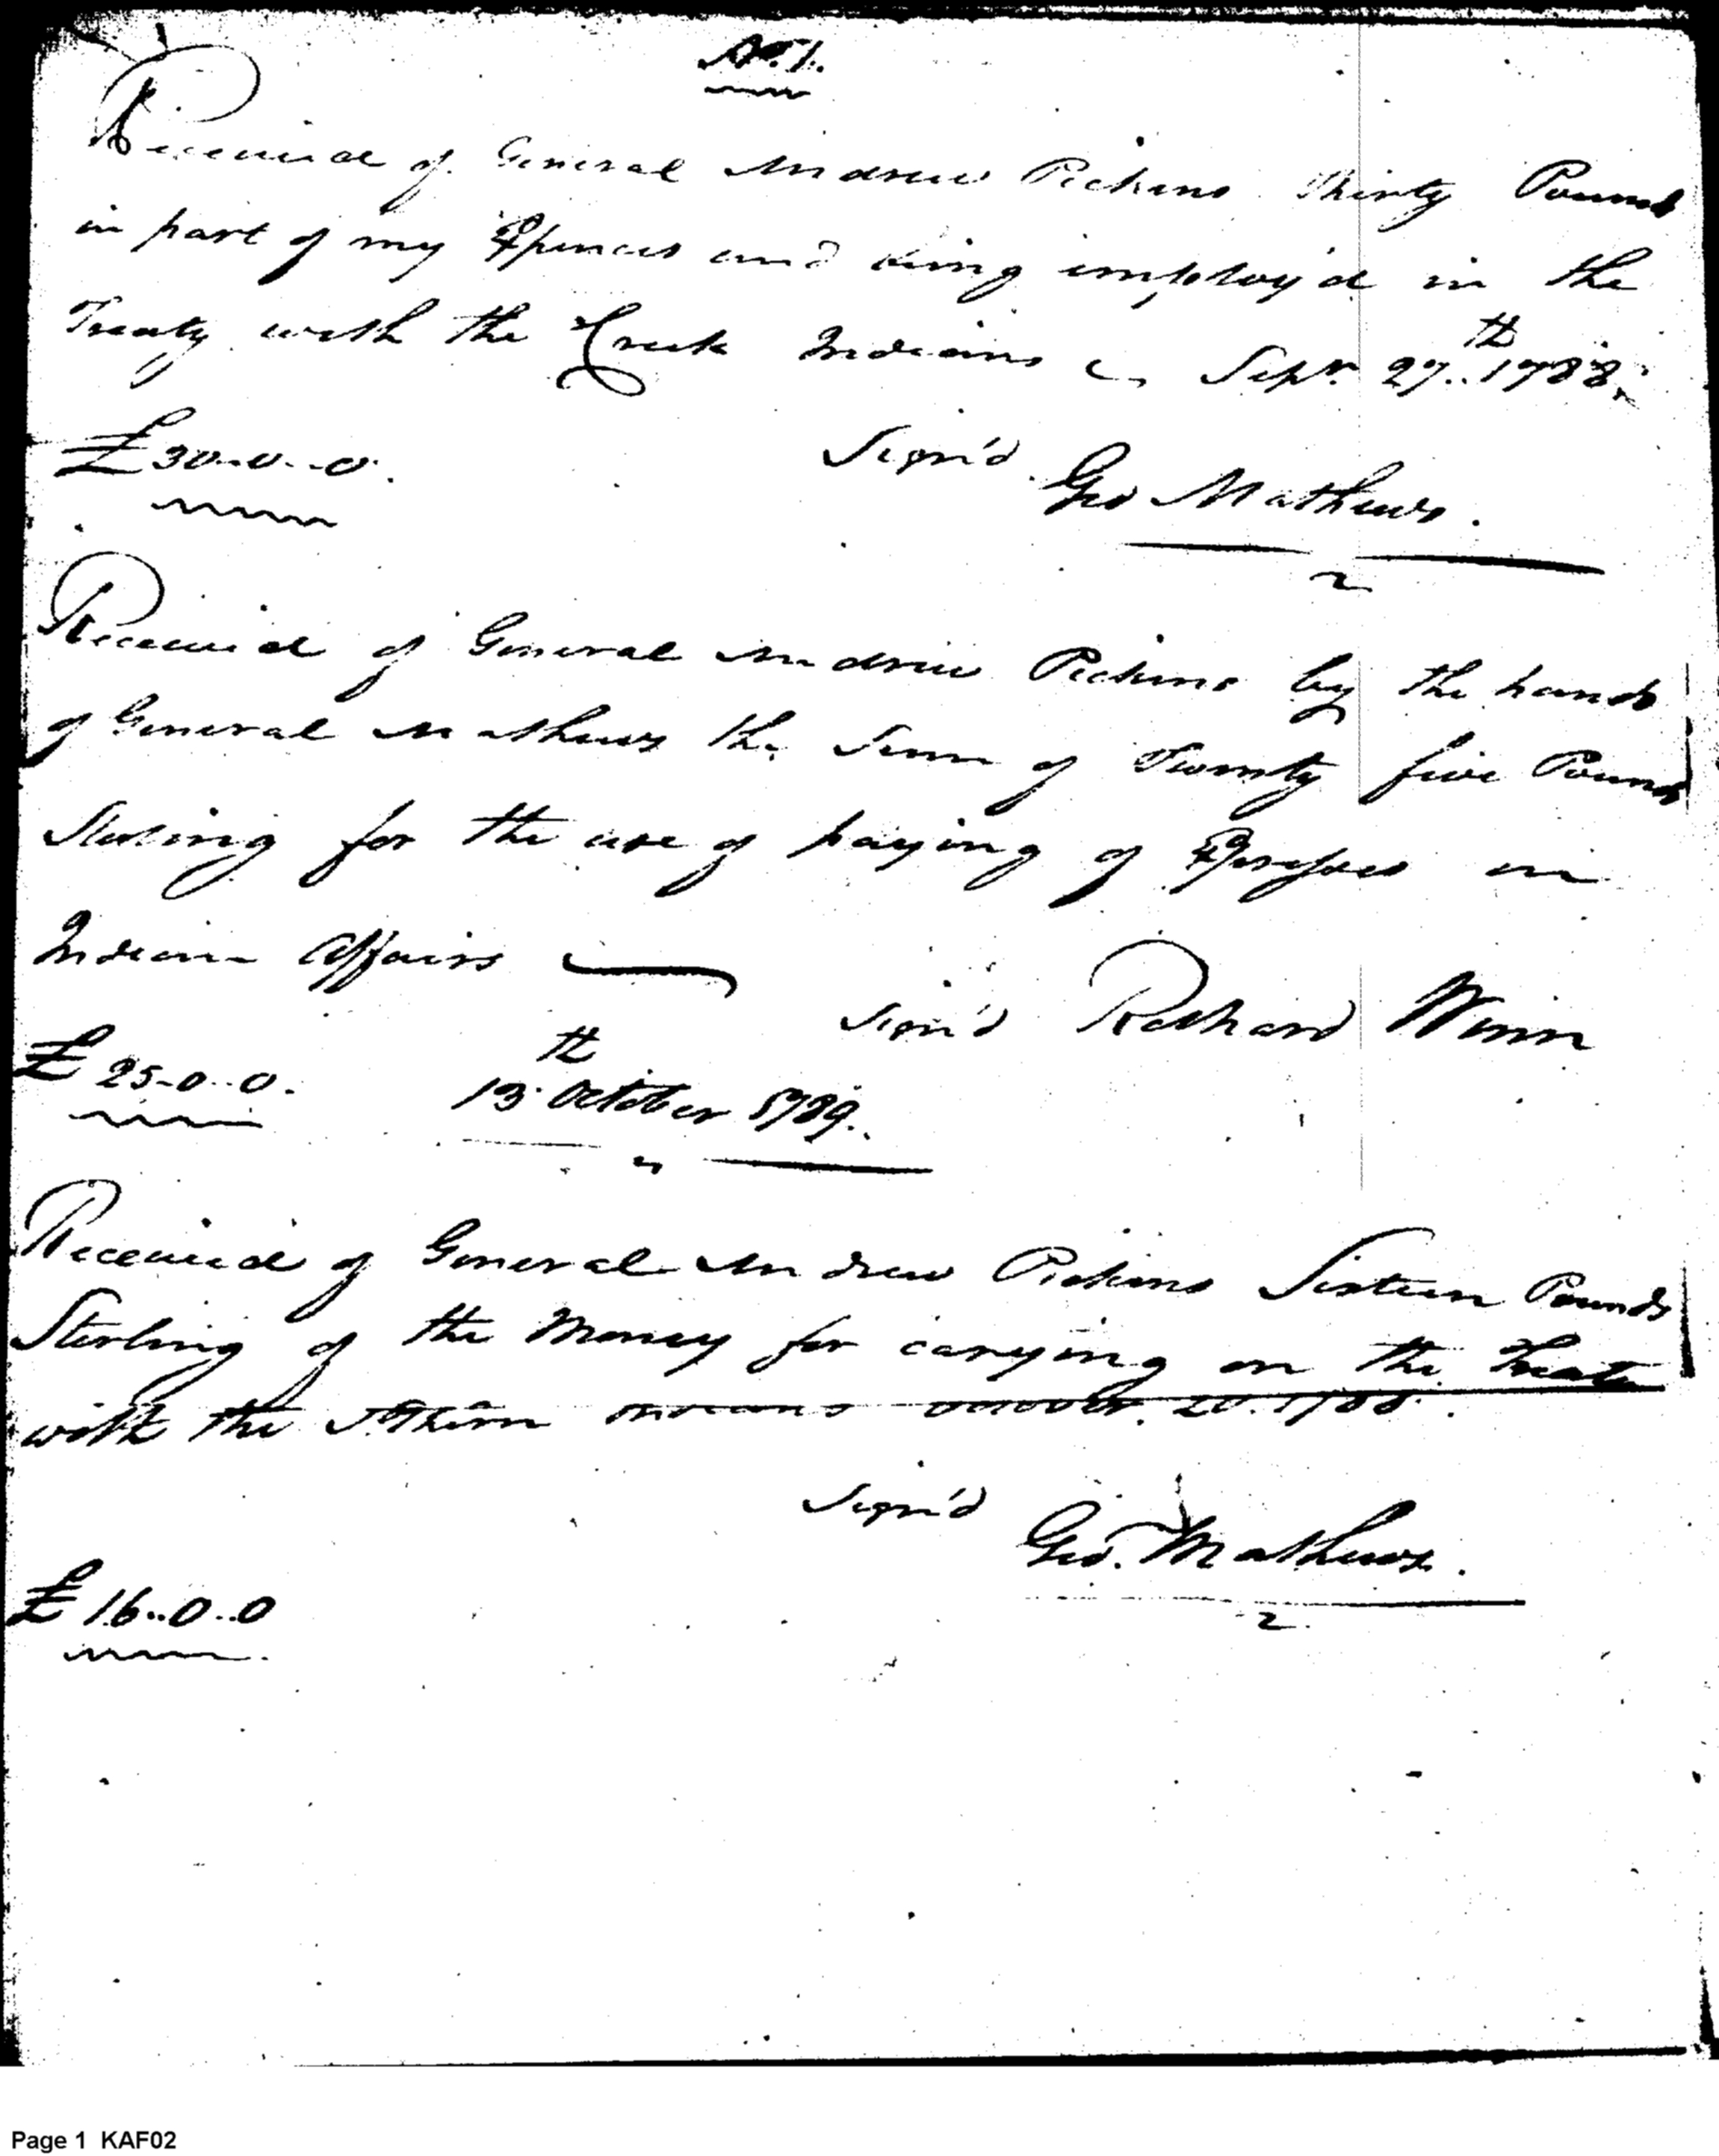 No. 1.
Received of General Andrew Pickens Thirty Pounds
in part of my Expences and being employ'd in the
Treaty with the Creek Indians Sepr. 27th 1788.
£30..0..0.
Sign'd Geo Mathews.
Received of General Andrew Pickens by the hands
of General Mathews the Sum of Twenty five Pounds
Sterling for the use of paying of Expresses in
Indian Affairs
Sign'd Richard Winn
£ 25..0..0.
13th October 1789.
Received of General Andrew Pickens Sixteen Pounds
Sterling of the Money for carying on the Treaty
with the Sothern Indians October. 20. 1788.
Sign'd
Geo. Mathews.
£ 16..0..0
Page 1 KAF02